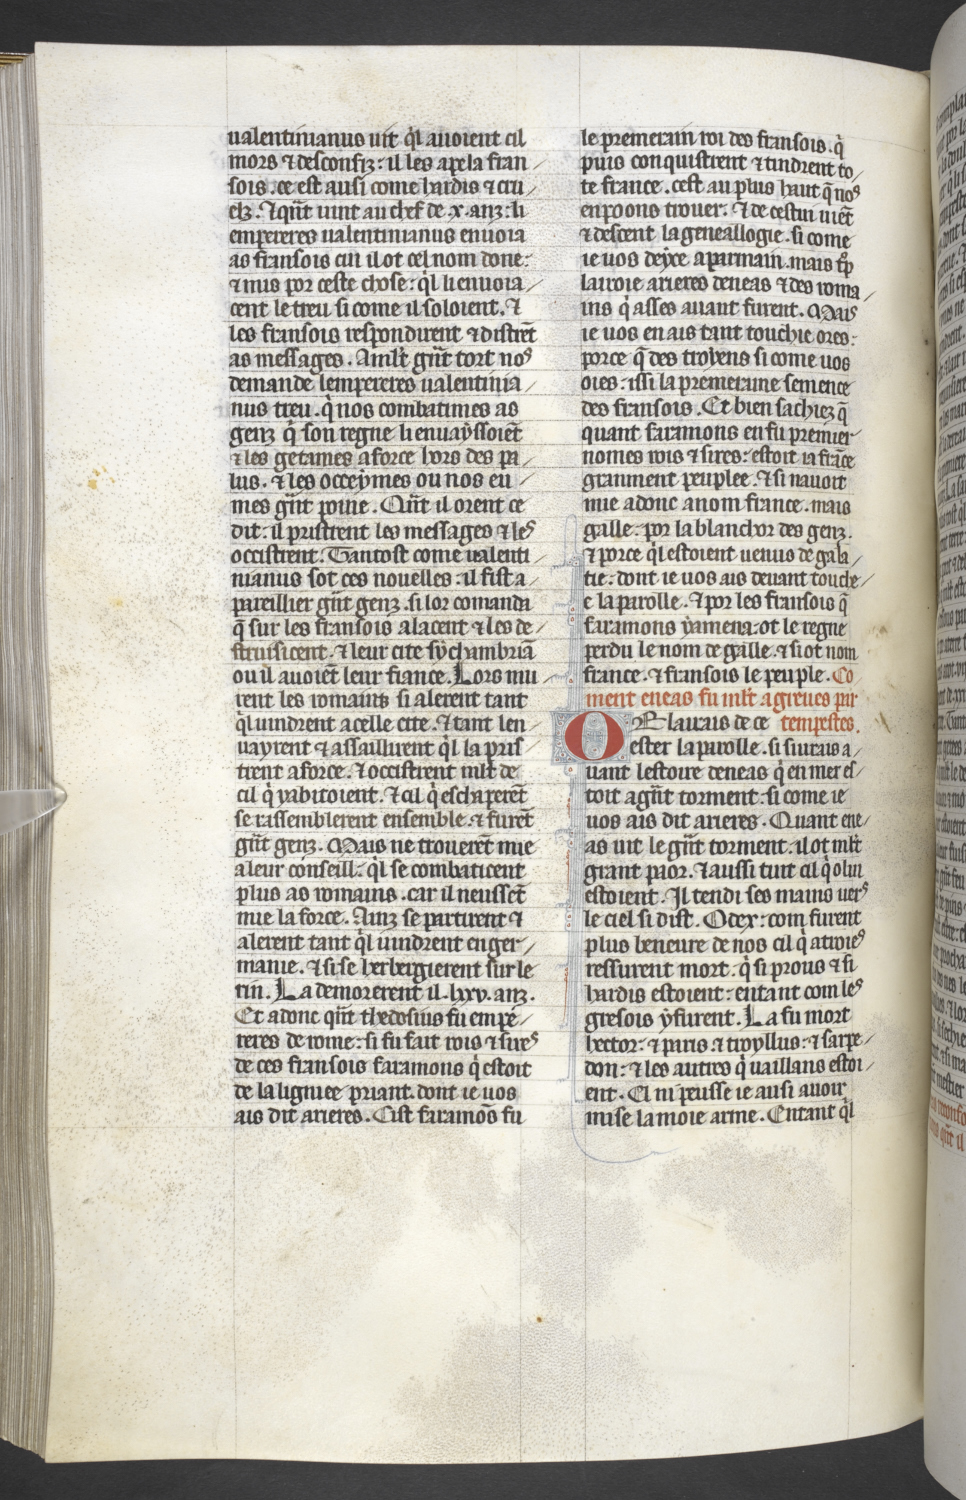 ualentinianus uit q̇l auoient cil
mors ⁊ desconfiz : il les apela fran
sois . ce est ausi come hardis ⁊ cru
elz . ⁊ qn̄t uint au chef de .x. anz : li
empereres ualentinianus enuoia
as fransois cui il ot cel nom done :
⁊ mis por ceste chose : q̇l li enuoia
cent le treu si come il soloient . ⁊
les fransois respondirent ⁊ distrēt
as messages . A mlt̄ gn̄t tort nos
demande lempereres ualentinia
nus treu . q̇ nos combatimes as
genz q̇ son regne li enuaẏssoiēt
⁊ les getames a force hors des pa
lus . ⁊ les occeẏmes ou nos eu
mes gn̄t poine . Qn̄t il orent ce
dit : il pristrent les messages ⁊ les
occistrent . Tantost come ualenti
nianus sot ces nouelles : il fist a
pareillier gn̄t genz . si lor comanda
q̄ sur les fransois alacent ⁊ les de
struisicent . ⁊ leur cite sẏchambria
ou il auoiēt leur fiance . Lors mu
rent les romains si alerent tant
q̇l uindrent a celle cite . ⁊ tant len
uayrent ⁊ assaillirent q̇l la pris
trent a force . ⁊ occistrent mlt̄ de
cil q̇ ẏabitoient . ⁊ cil q̇ eschaperēt
se rassemblerent ensemble . ⁊ furēt
gn̄t genz . Mais ne trouerēt mie
a leur conseill : q̇l se combaticent
plus as romains . car il neussēt
mie la force . Ainz se partirent ⁊
alerent tant q̇l uindrent en ger
manie . ⁊ si se herbergierent sur le
rin . La demorerent il . lxv . anz .
Et adonc qn̄t thedosius fu empe
reres de rome : si fu fait rois ⁊ sires
de ces fransois faramons q̇ estoit
de la lignee priant . dont ie uos
ais dit arieres . Cist faramōs fu
le premerain roi des fransois . q̇
puis conquistrent ⁊ tindrent to
te france . cest au plus haut q̄ nos
en poons trouer . ⁊ de cestui uiēt
⁊ descent la geneallogie . si come
ie uos deẏre aparmain . mais
lairoie arieres deneas ⁊ des roma
ins q̇ asses auant furent . Mais
ie uos en ais tant touchie ores :
porce q̄ des troyens si come uos
oies : issi la premeraine semence
des fransois . Et bien sachiez q̄
quant faramons en fu premier
nomes rois ⁊ sires : estoit ia frāce
granment peuplee . ⁊ si nauoit
mie adonc a nom france . mais
galle . por la blanchor des genz .
⁊ porce q̇l estoient uenus de gala
tie : dont ie uos ais deuant touche
e la parolle . ⁊ por les fransois q̄
faramons ẏ amena : ot le regne
perdu le nom de galle . ⁊ si ot nom
france . ⁊ fransois le peuple . Co
ment eneas fu mlt̄ agreues par
tempestes .
OR lairais de ce
ester la parolle . si siurais a
uant lestoire deneas q̇ en mer es
toit a gn̄t torment : si come ie
uos ais dit arieres . Quant ene
as uit le gn̄t torment . il ot mlt̄
grant paor . ⁊ aussi tuit cil q̇ o lui
estoient . Il tendi ses mains uers
le ciel si dist . O dex : com furent
plus beneure de nos cil q̇ a troie
ressurent mort . q̇ si prous ⁊ si
hardis estoient : entant com les
gresois ẏ furent . La fu mort
hector : ⁊ paris ⁊ troyllus : ⁊ sarpe
don : ⁊ les autres q̇ uaillans estoi
ent . Ei ni peusse ie ausi auoir
mise la moie arme . Entant q̇l